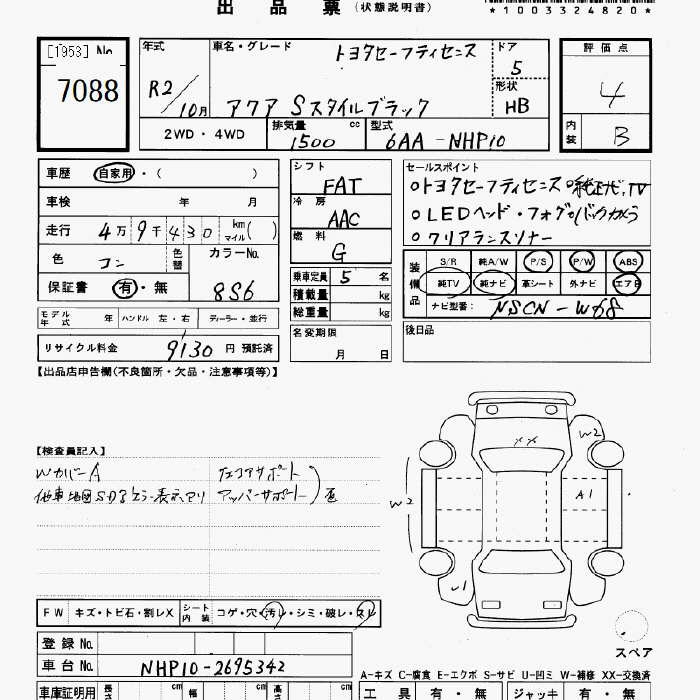 出品票(状態説明書)
*1003324820*
[1953] No
7088
年式
R2/10月
車名・グレード
トヨタセーフティセンス
アクア Sスタイルブラック
ドア
5
形状
HB
評価点
4
内装
B
2WD・4WD
排気量 1500 cc
型式 6AA-NHP10
車歴 自家用・( )
車検 年 月
走行 4万9千430 km マイル( )
色 コン 色替
カラーNo. 8S6
保証書 有・無
モデル年式 年 ハンドル 左・右 ディーラー・並行
リサイクル料金 9130 円 預託済
シフト FAT
冷房 AAC
燃料 G
乗車定員 5 名
積載量 kg
総重量 kg
名変期限 月 日
セールスポイント
○トヨタセーフティセンス ○純正ナビ,TV
○LEDヘッド・フォグ ○バックカメラ
○クリアランスソナー
装備品
S/R 純A/W P/S P/W ABS
純TV 純ナビ 革シート 外ナビ エアB
ナビ型番: NSCN-W68
後日品
【出品店申告欄(不良箇所・欠品・注意事項等)】
【検査員記入】
Wカバー A
他車地図SDよりエラー表示アリ
ラジエタサポート
アッパーサポート
XX
W2
W2
A1
W1
スペア
FW キズ・トビ石・割レX
シート内装 コゲ・穴・汚レ・シミ・破レ・スレ
登録No.
車台No. NHP10-2695342
A-キズ C-腐食 E-エクボ S-サビ U-凹ミ W-補修 XX-交換済
車庫証明用 長さ cm 幅 cm 高さ cm
工具 有・無 ジャッキ 有・無